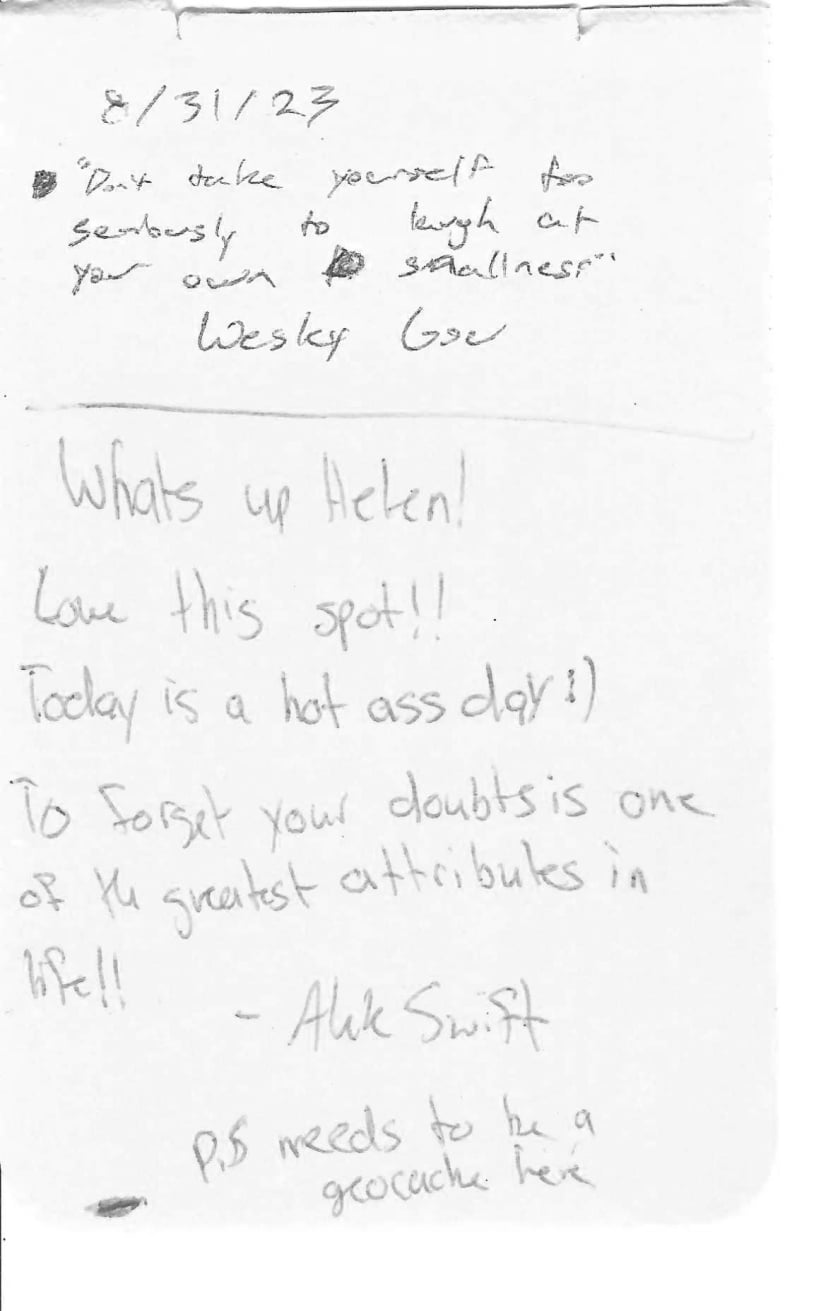 8/31/23
"Don't take yourself too
seriously to laugh at
your own smallness"
Wesley
Whats up Helen!
Love this spot!!
Today is a hot ass day :)
To forget your doubts is one
of the greatest attributes in
life!!
- Swift
P.S needs to be a
geocache here